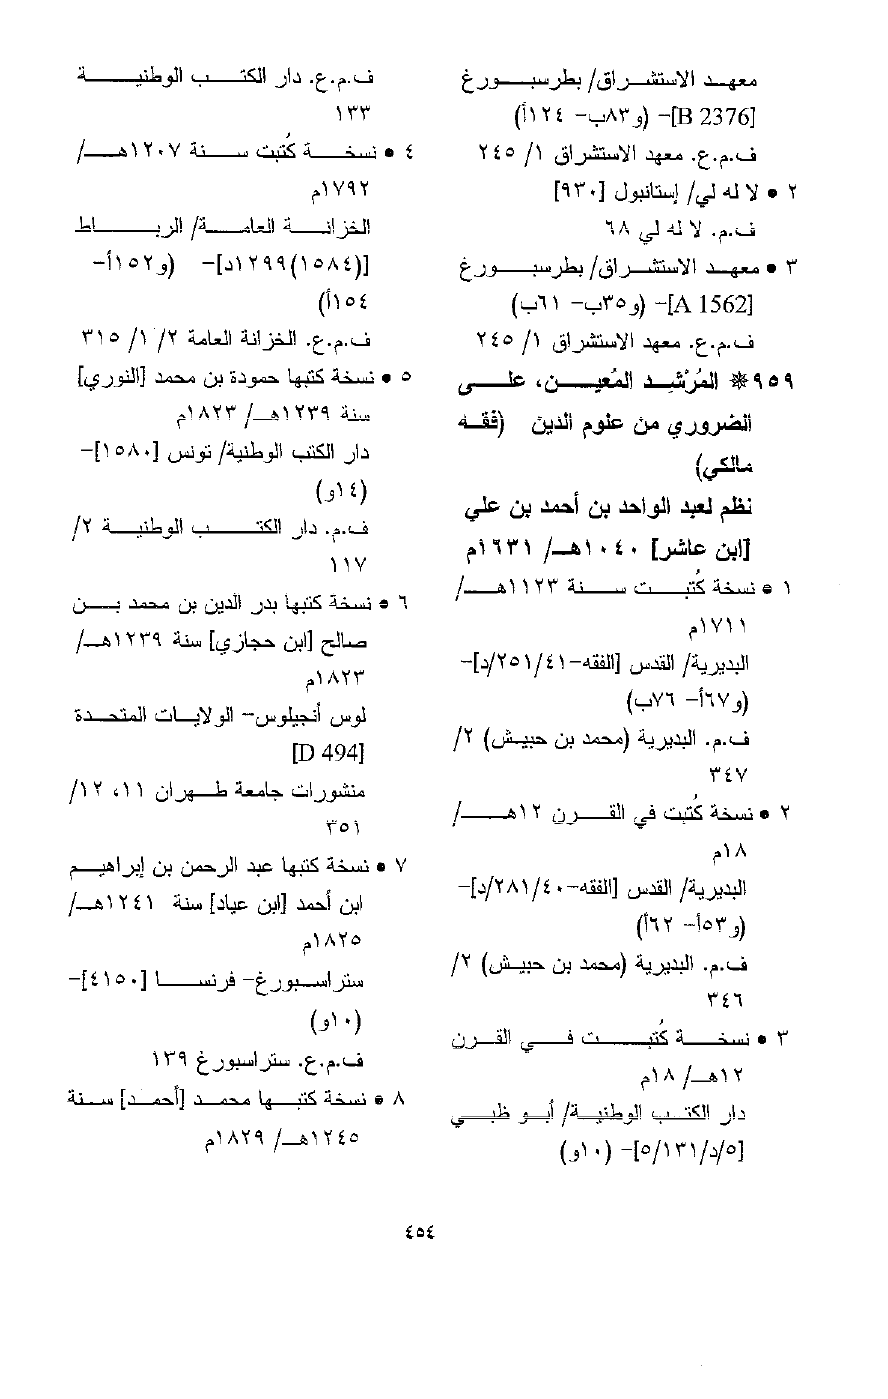 معهد الاستشراق/ بطرسبورغ
[B 2376]- (و٨٣ب- ١٢٤أ)
ف.م.ع. معهد الاستشراق ١/ ٢٤٥
٢ • لا له لي/ إستانبول [٩٣٠]
ف.م. لا له لي ٦٨
٣ • معهد الاستشراق/ بطرسبورغ
[A 1562]- (و٣٥ب- ٦١ب)
ف.م.ع. معهد الاستشراق ١/ ٢٤٥
٩٥٩ ❋ المُرْشِد المُعين، على
الضروري من علوم الدين (فقه
مالكي)
نظم لعبد الواحد بن أحمد بن علي
[ابن عاشر] ١٠٤٠هـ/ ١٦٣١م
١ • نسخة كُتبت سنة ١١٢٣هـ/
١٧١١م
البديرية/ القدس [الفقه-٢٥١/٤١/د]-
(و٦٧أ- ٧٦ب)
ف.م. البديرية (محمد بن حبيش) ٢/
٣٤٧
٢ • نسخة كُتبت في القرن ١٢هـ/
١٨م
البديرية/ القدس [الفقه-٢٨١/٤٠/د]-
(و٥٣أ- ٦٢أ)
ف.م. البديرية (محمد بن حبيش) ٢/
٣٤٦
٣ • نسخة كُتبت في القرن
١٢هـ/ ١٨م
دار الكتب الوطنية/ أبو ظبي
[٥/د/١٣١/٥]- (١٠و)
ف.م.ع. دار الكتب الوطنية
١٣٣
٤ • نسخة كُتبت سنة ١٢٠٧هـ/
١٧٩٢م
الخزانة العامة/ الرباط
[(١٥٨٤)١٢٩٩د]- (و١٥٢أ-
١٥٤أ)
ف.م.ع. الخزانة العامة ٢/ ١/ ٣١٥
٥ • نسخة كتبها حمودة بن محمد [النوري]
سنة ١٢٣٩هـ/ ١٨٢٣م
دار الكتب الوطنية/ تونس [١٥٨٠]-
(١٤و)
ف.م. دار الكتب الوطنية ٢/
١١٧
٦ • نسخة كتبها بدر الدين بن محمد بن
صالح [ابن حجازي] سنة ١٢٣٩هـ/
١٨٢٣م
لوس أنجيلوس- الولايات المتحدة
[D 494]
منشورات جامعة طهران ١١، ١٢/
٣٥١
٧ • نسخة كتبها عبد الرحمن بن إبراهيم
ابن أحمد [ابن عياد] سنة ١٢٤١هـ/
١٨٢٥م
ستراسبورغ- فرنسا [٤١٥٠]-
(١٠و)
ف.م.ع. ستراسبورغ ١٣٩
٨ • نسخة كتبها محمد [أحمد] سنة
١٢٤٥هـ/ ١٨٢٩م
٤٥٤